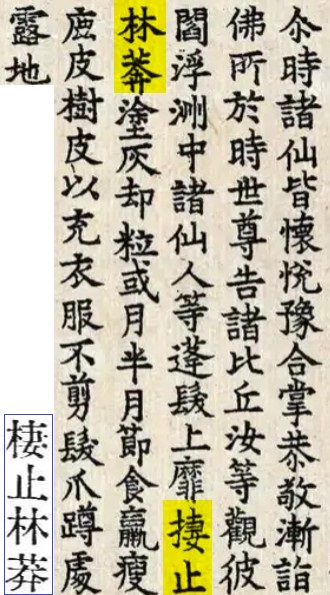 尒時諸仙皆懷悅豫合掌恭敬漸詣
佛所於時世尊告諸比丘汝等觀彼
閻浮洲中諸仙人等蓬髮上靡捿止
林莽塗灰却粒或月半月節食羸瘦
鹿皮樹皮以充衣服不剪髮爪蹲處
露地
棲止林莽